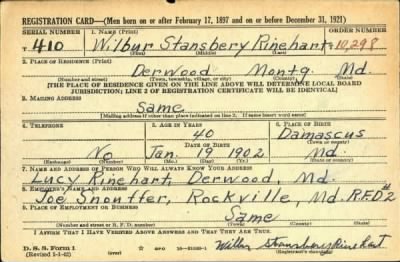 REGISTRATION CARD—(Men born on or after February 17, 1897 and on or before December 31, 1921)
SERIAL NUMBER 1. NAME (Print) ORDER NUMBER
T 410 Wilbur Stansbery Rinehart 10,298
(First) (Middle) (Last)
2. PLACE OF RESIDENCE (Print)
Derwood Montg Md.
(Number and street) (Town, township, village, or city) (County) (State)
[THE PLACE OF RESIDENCE GIVEN ON THE LINE ABOVE WILL DETERMINE LOCAL BOARD
JURISDICTION; LINE 2 OF REGISTRATION CERTIFICATE WILL BE IDENTICAL]
3. MAILING ADDRESS
Same
(Mailing address if other than place indicated on line 2. If same insert word same)
4. TELEPHONE 5. AGE IN YEARS 6. PLACE OF BIRTH
40 Damascus
DATE OF BIRTH (Town or county)
No Jan. 19 1902 Md.
(Exchange) (Number) (Mo.) (Day) (Yr.) (State or country)
7. NAME AND ADDRESS OF PERSON WHO WILL ALWAYS KNOW YOUR ADDRESS
Lucy Rinehart, Derwood, Md.
8. EMPLOYER'S NAME AND ADDRESS
Joe Snouffer, Rockville, Md. R.F.D. #2
9. PLACE OF EMPLOYMENT OR BUSINESS
Same
(Number and street or R. F. D. number) (Town) (County) (State)
I AFFIRM THAT I HAVE VERIFIED ABOVE ANSWERS AND THAT THEY ARE TRUE.
D. S. S. Form 1 Wilbur Stansbery Rinehart
(Revised 1-1-42) (over) (Registrant's signature)